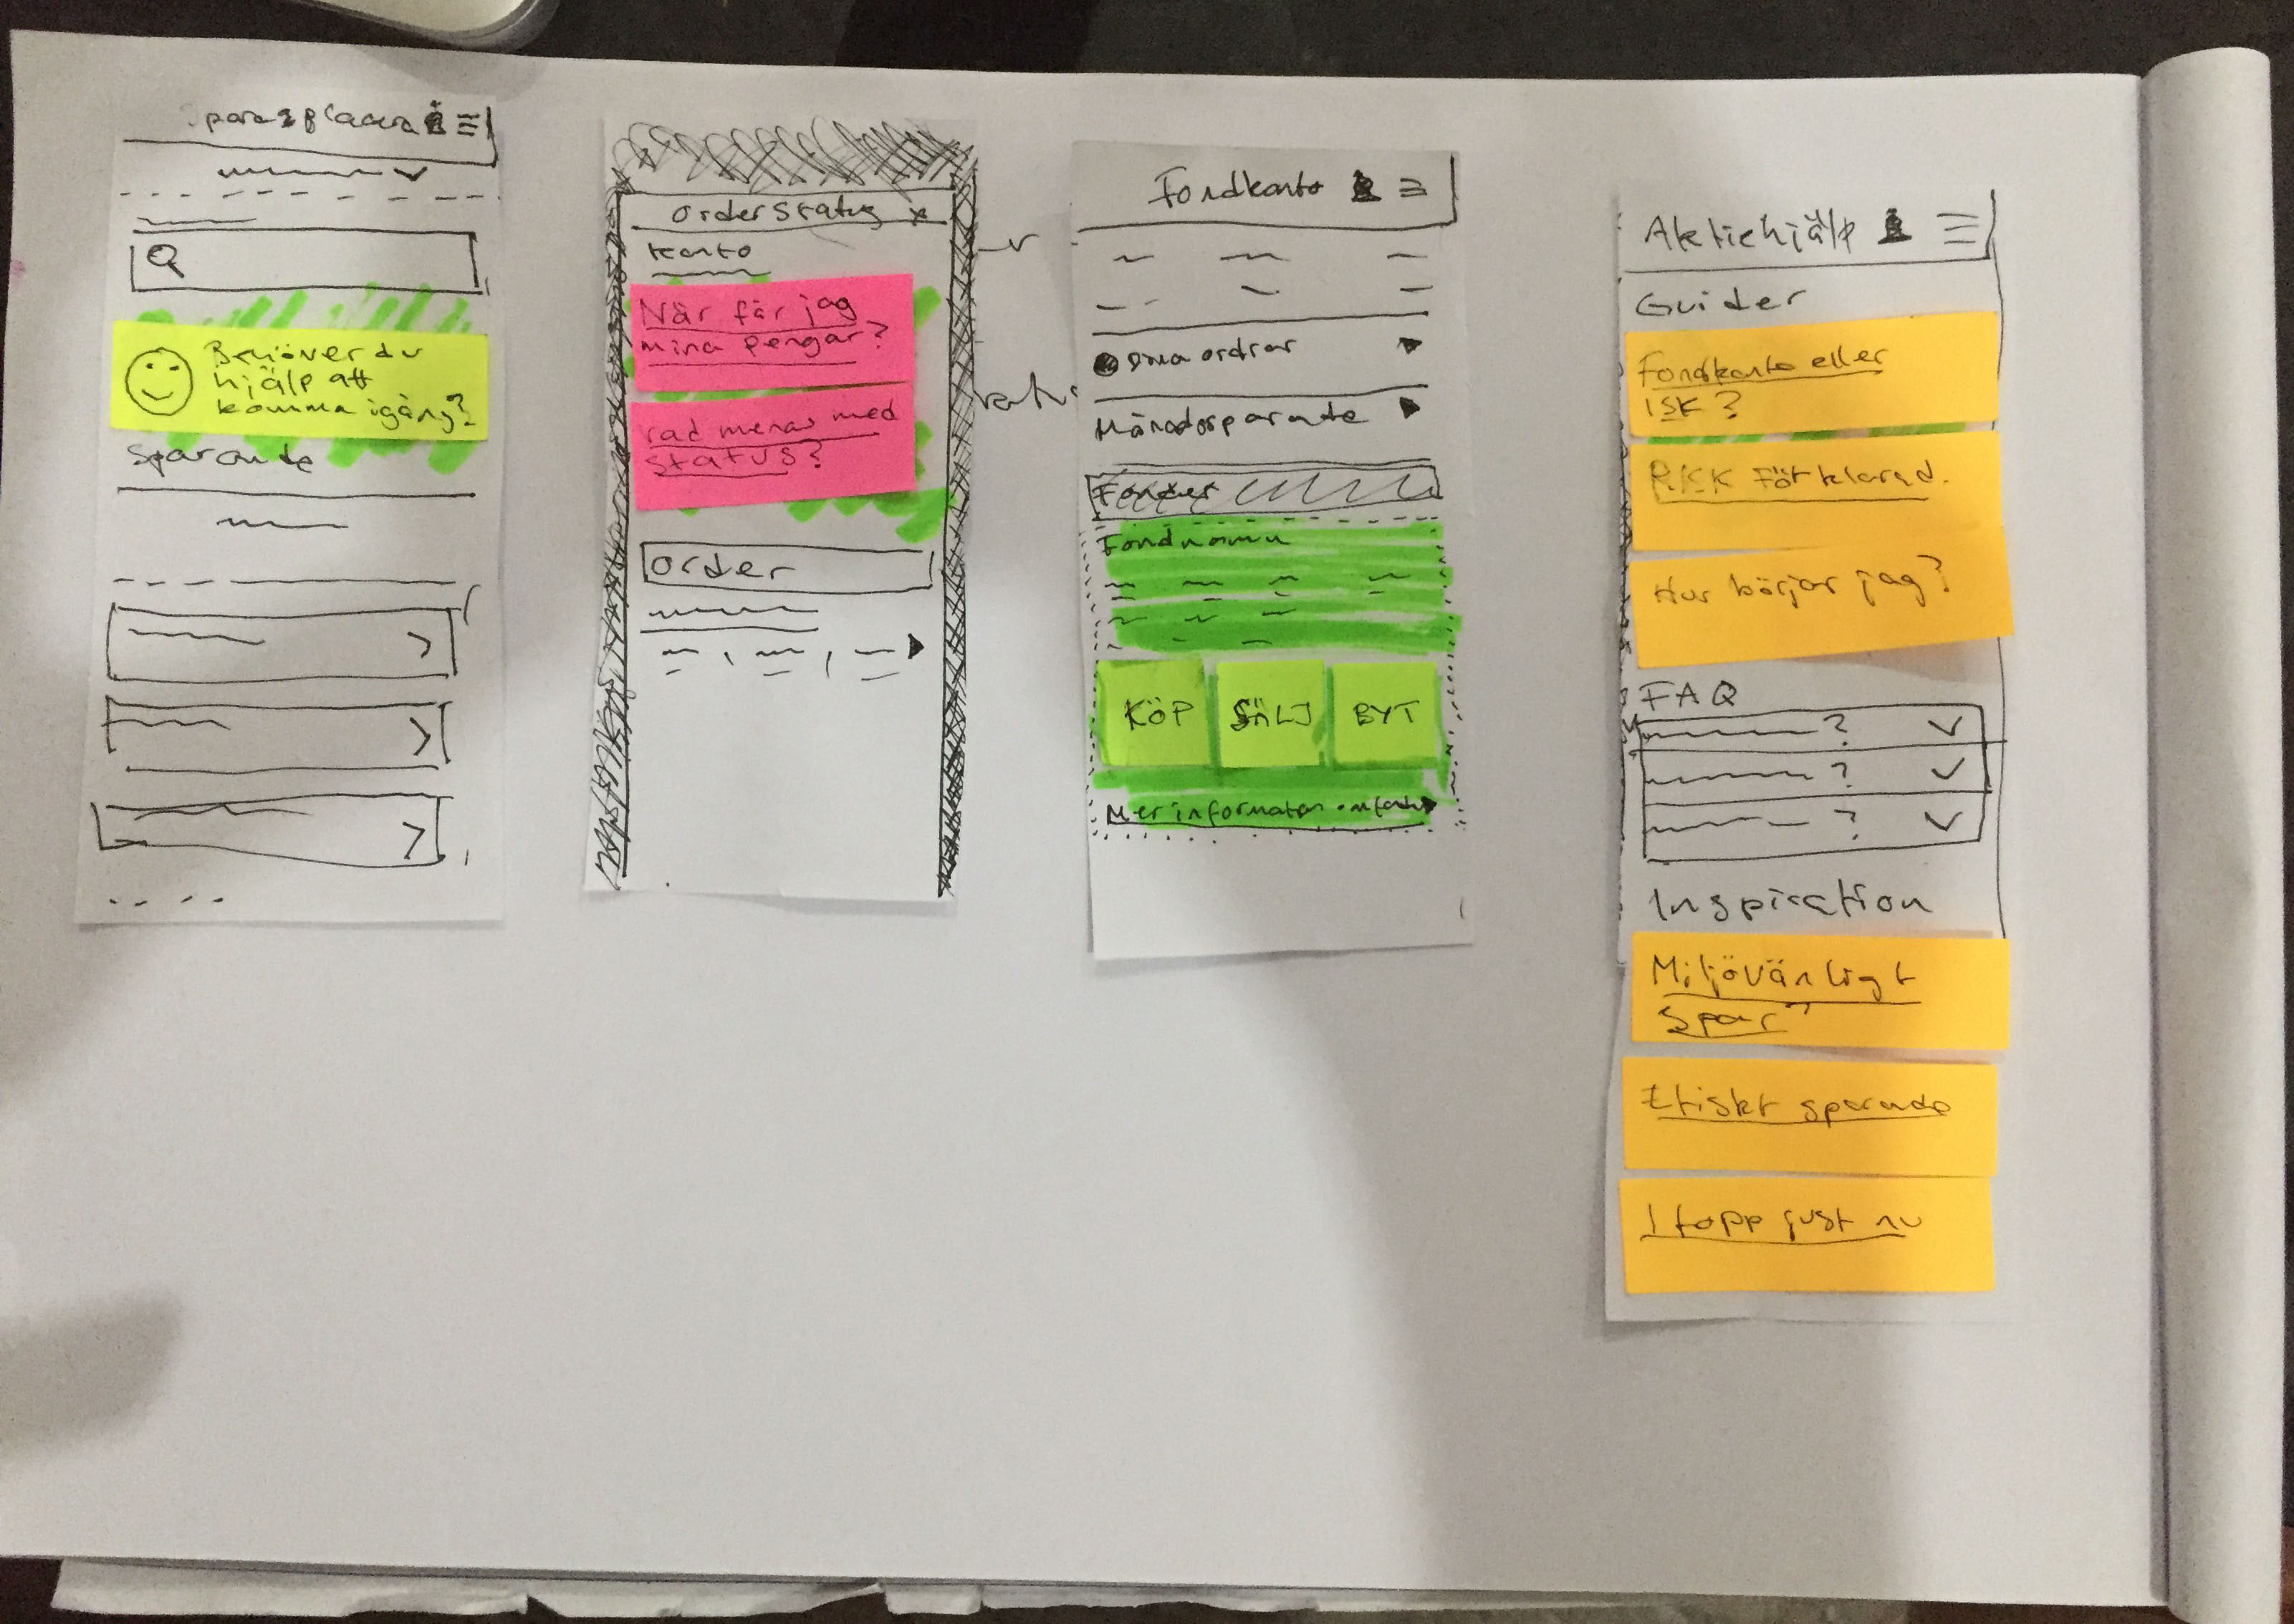 Spara & placera
Behöver du
hjälp att
komma igång?
Sparande
Orderstatus x
Konto
När får jag
mina pengar?
Vad menas med
status?
Order
Fondkonto
Dina ordrar
Månadssparande
Fonder
Fondnamn
KÖP SÄLJ BYT
Mer information
Aktiehjälp
Guider
Fondkonto eller
ISK?
RISK Förklarad.
Hur börjar jag?
FAQ
?
?
?
Inspiration
Miljövänligt
Spar
Etiskt sparande
I topp just nu